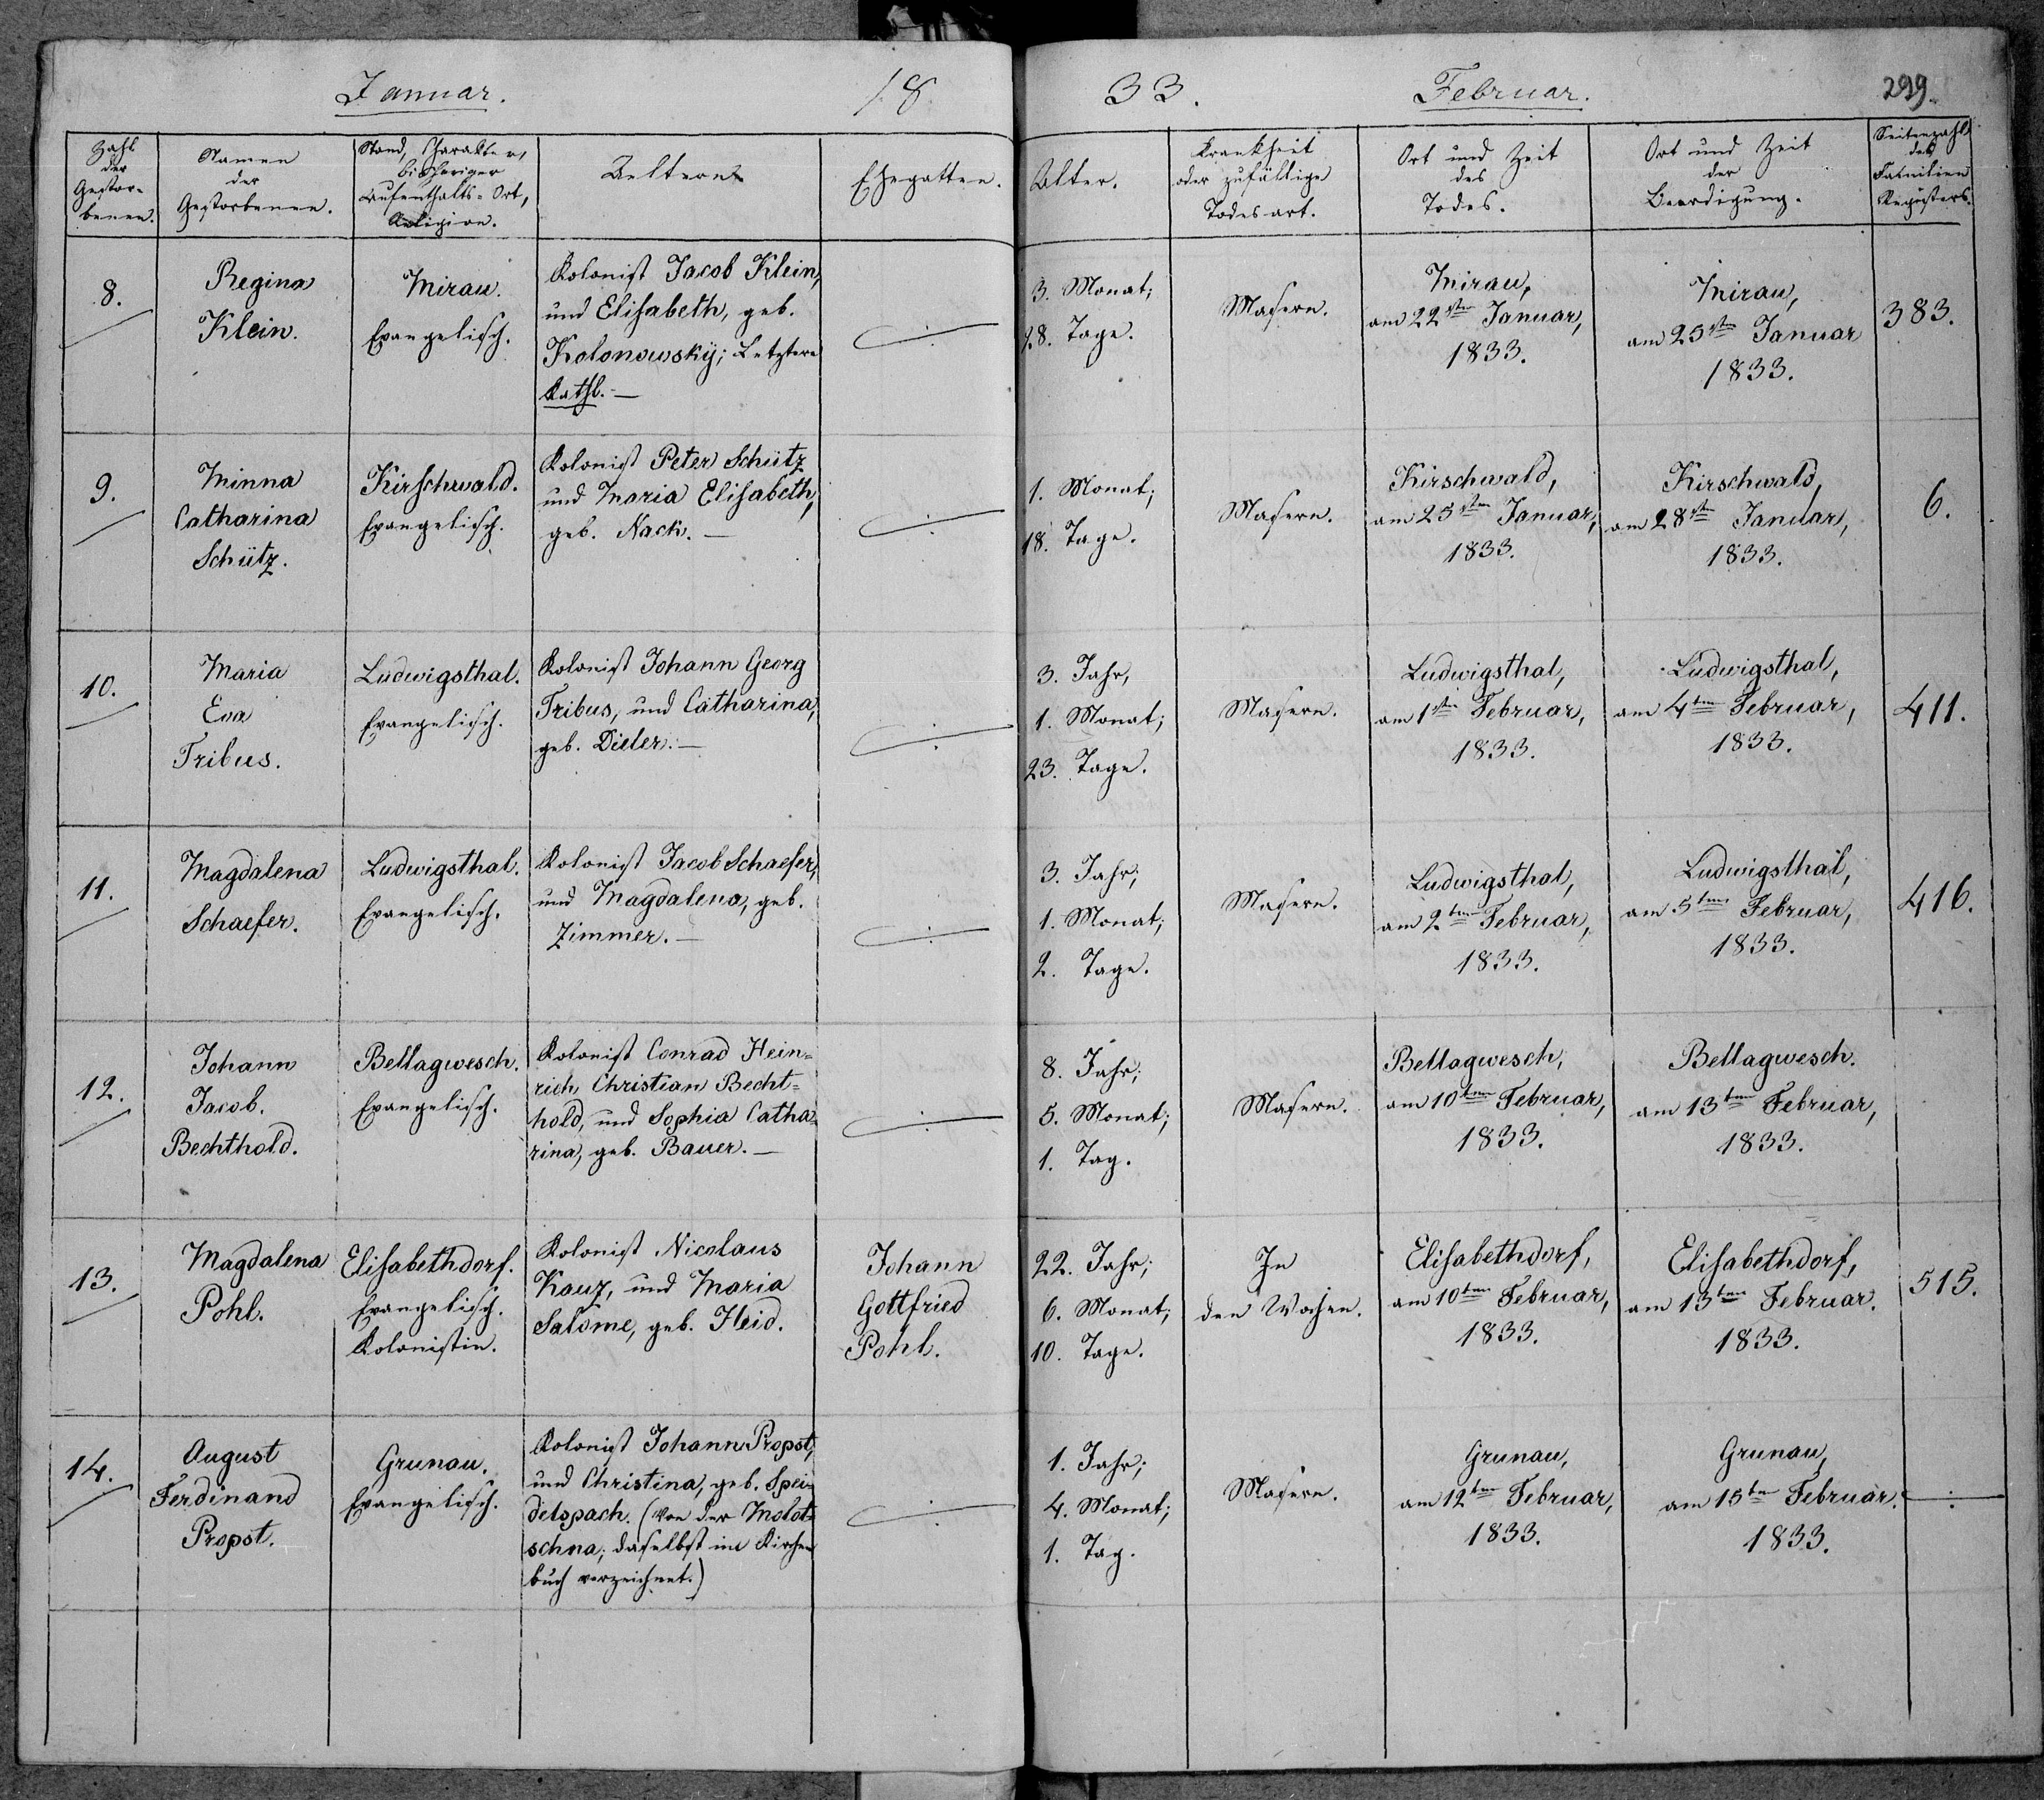 Januar.
18
33.
Februar.
299.
Zahl
der
Gestor-
benen.
Namen
der
Gestorbenen.
Stand, Charakter,
bisheriger
Aufenthalts-Ort,
Religion.
Aeltern
Ehegatten.
Alter.
Krankheit
oder zufällige
Todesart.
Ort und Zeit
des
Todes.
Ort und Zeit
der
Beerdigung.
Seitenzahl
des
Familien
Registers.
8.
Regina
Klein.
Mirau.
Evangelisch.
Kolonist Jacob Klein,
und Elisabeth, geb.
Kolonowskÿ; Letztere
Kathl. —
3. Monat;
28. Tage.
Masern.
Mirau,
am 22sten Januar,
1833.
Mirau,
am 25sten Januar
1833.
383.
9.
Minna
Catharina
Schütz.
Kirschwald.
Evangelisch.
Kolonist Peter Schütz
und Maria Elisabeth,
geb. Nack. —
1. Monat;
18. Tage.
Masern.
Kirschwald,
am 25sten Januar,
1833.
Kirschwald,
am 28sten Januar,
1833.
6.
10.
Maria
Eva
Tribus.
Ludwigsthal.
Evangelisch.
Kolonist Johann Georg
Tribus, und Catharina,
geb. Dieler. —
3. Jahr,
1. Monat;
23. Tage.
Masern.
Ludwigsthal,
am 1sten Februar,
1833.
Ludwigsthal,
am 4ten Februar,
1833.
411.
11.
Magdalena
Schaefer.
Ludwigsthal.
Evangelisch.
Kolonist Jacob Schaefer,
und Magdalena, geb.
Zimmer. —
3. Jahr;
1. Monat;
2. Tage.
Masern.
Ludwigsthal,
am 2ten Februar,
1833.
Ludwigsthal,
am 5ten Februar,
1833.
416.
12.
Johann
Jacob.
Bechthold.
Bellagwesch.
Evangelisch.
Kolonist Conrad Hein=
rich Christian Becht=
hold, und Sophia Catha=
rina, geb. Bauer. —
8. Jahr;
5. Monat;
1. Tag.
Masern.
Bellagwesch,
am 10ten Februar,
1833.
Bellagwesch.
am 13ten Februar,
1833.
13.
Magdalena
Pohl.
Elisabethdorf.
Evangelisch.
Kolonistin.
Kolonist Nicolaus
Kauz, und Maria
Salome, geb. Heid.
Johann
Gottfried
Pohl.
22. Jahr;
6. Monat;
10. Tage.
In
den Wochen.
Elisabethdorf,
am 10ten Februar,
1833.
Elisabethdorf,
am 13ten Februar.
1833.
515.
14.
August
Ferdinand
Propst.
Grunau.
Evangelisch.
Kolonist Johann Propst,
und Christina, geb. Spei=
delspach. (Von der Molot=
schna; daselbst im Kirchen
buch verzeichnet.)
1. Jahr;
4. Monat;
1. Tag.
Masern.
Grunau,
am 12ten Februar,
1833.
Grunau,
am 15ten Februar.
1833.